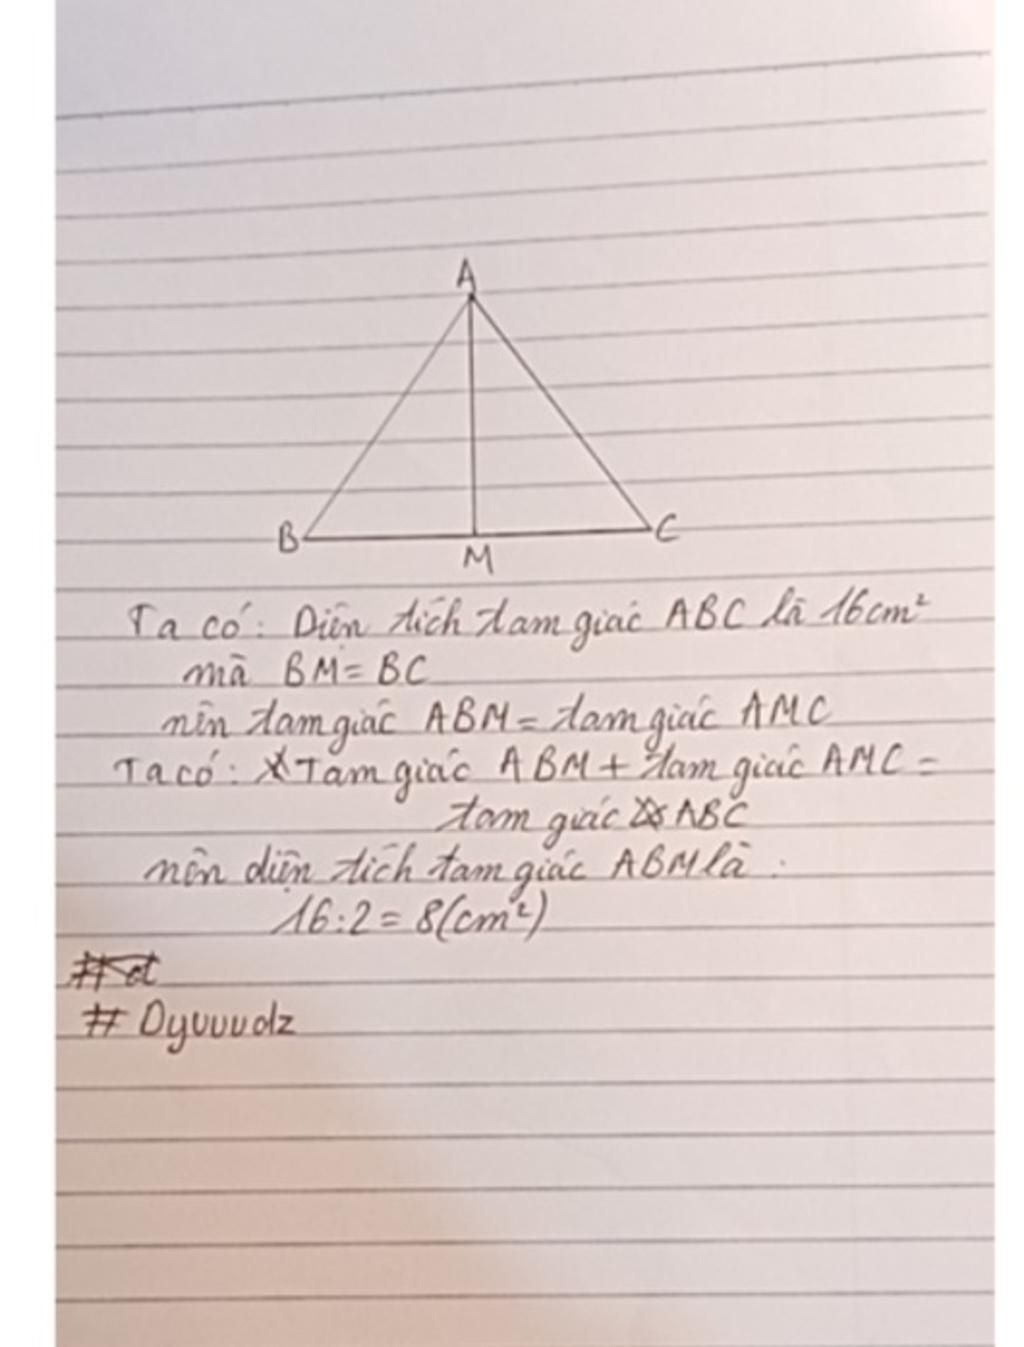 A
B
C
M
Ta có: Diện tích tam giác ABC là 16cm²
mà BM = BC
nên tam giác ABM = tam giác AMC
Ta có: Tam giác ABM + tam giác AMC =
tam giác ABC
nên diện tích tam giác ABM là :
16:2 = 8(cm²)
# Dyuuudz